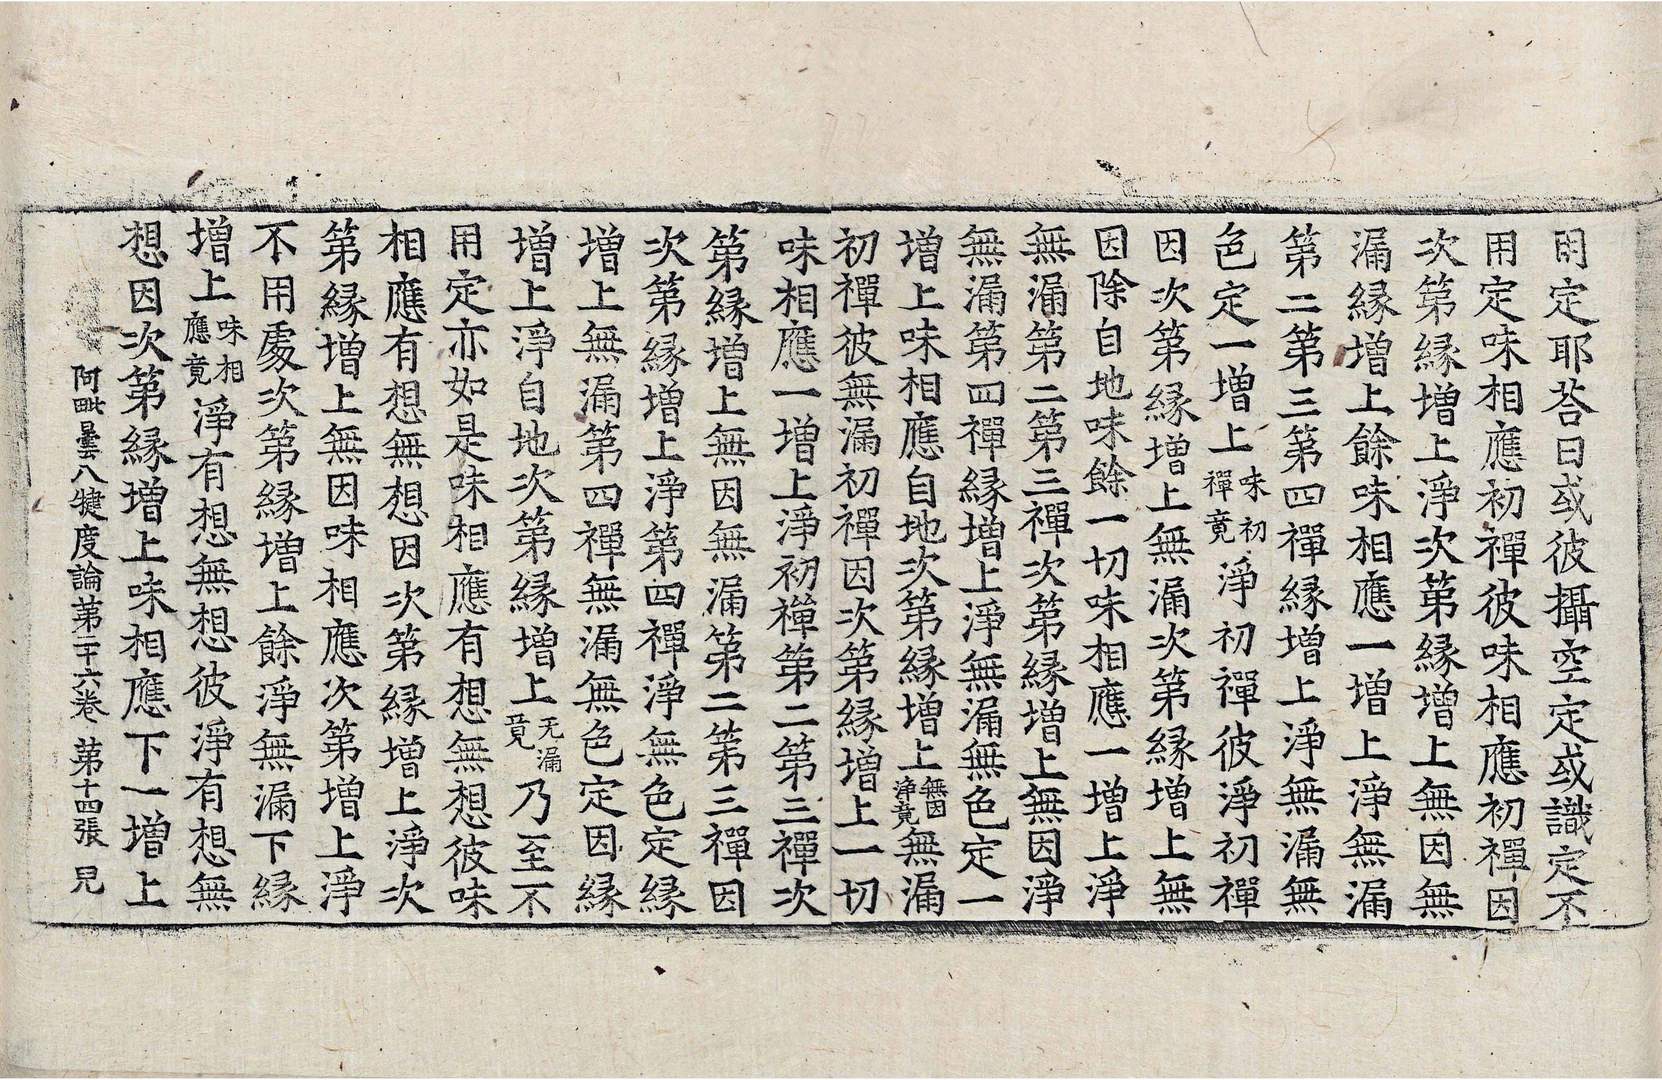 用定耶荅曰或彼攝空定或識定不
用定味相應初禪彼味相應初禪因
次第縁增上淨次第縁增上無因無
漏縁增上餘味相應一增上淨無漏
第二第三第四禪縁增上淨無漏無
色定一增上味初禪竟淨初禪彼淨初禪
因次第縁增上無漏次第縁增上無
因除自地味餘一切味相應一增上淨
無漏第二第三禪次第縁增上無因淨
無漏第四禪縁增上淨無漏無色定一
增上味相應自地次第縁增上無因淨竟無漏
初禪彼無漏初禪因次第縁增上一切
味相應一增上淨初禪第二第三禪次
第縁增上無因無漏第二第三禪因
次第縁增上淨第四禪淨無色定縁
增上無漏第四禪無漏無色定因縁
增上淨自地次第縁增上无漏竟乃至不
用定亦如是味相應有想無想彼味
相應有想無想因次第縁增上淨次
第縁增上無因味相應次第增上淨
不用處次第縁增上餘淨無漏下縁
增上味相應竟淨有想無想彼淨有想無
想因次第縁增上味相應下一增上
阿毗曇八犍度論第二十六卷 第十四張 見